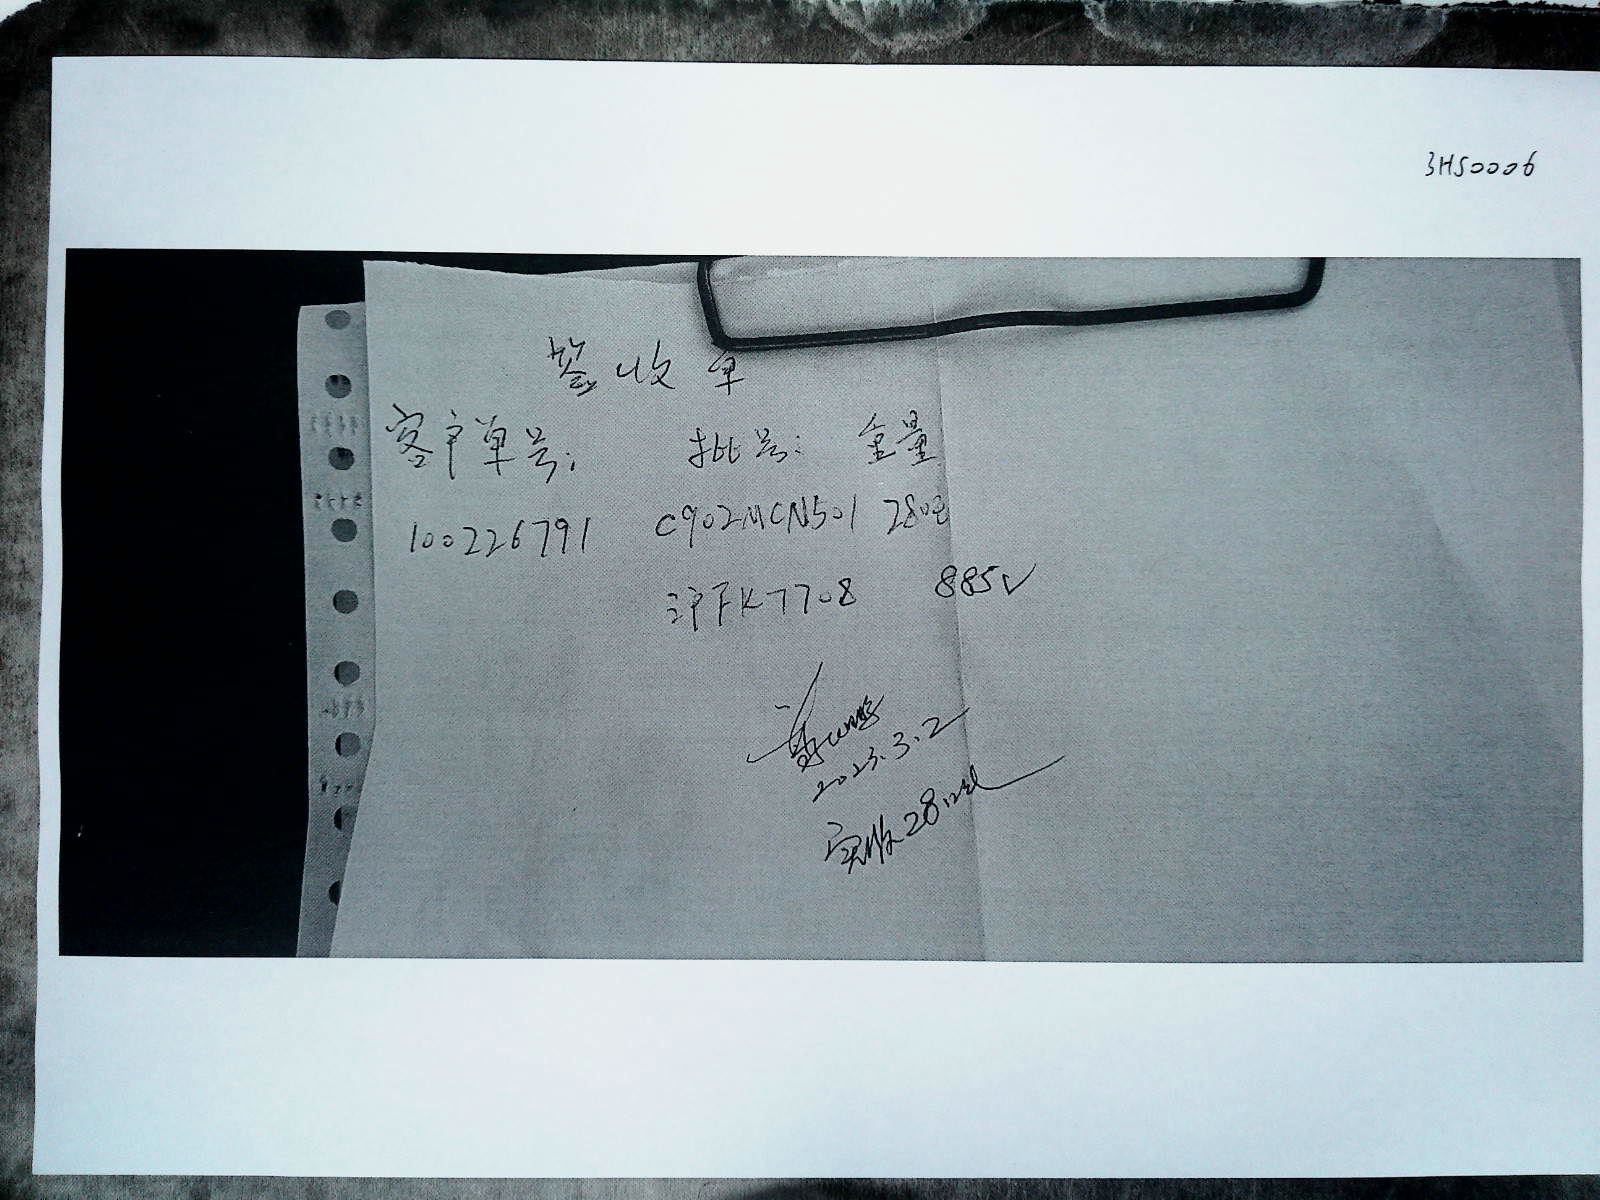 3HS0006
签收单
客户单号: 批号: 重量
100226791 C902MCN501 28吨
沪FK7708 885√
2023.3.2
实收28吨